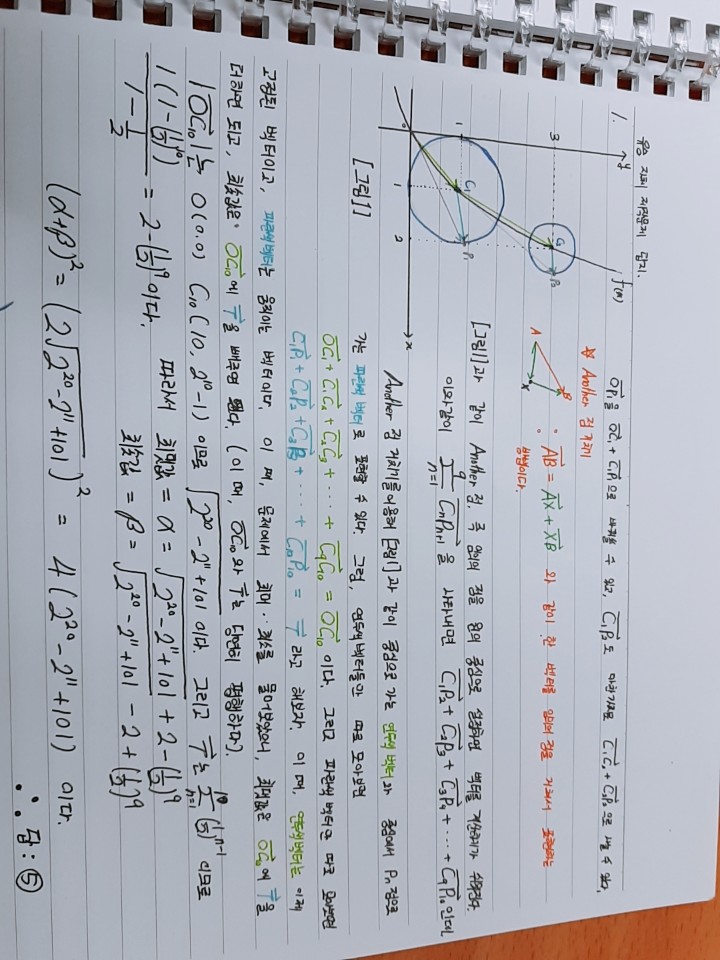 유승 자체 제작문제 답지.
1.
y
f(x)
3
C₂ P₂
1
C₁ P₁
0 1 2 x
[그림1]
$\overrightarrow{OP_1}$을 $\overrightarrow{OC_1}+\overrightarrow{C_1P_1}$으로 바꿔쓸 수 있고, $\overrightarrow{C_1P_2}$도 마찬가지로 $\overrightarrow{C_1C_2}+\overrightarrow{C_2P_2}$으로 쓸 수 있다.
☆ Another 점 거치기
A B X
∘ $\overrightarrow{AB}=\overrightarrow{AX}+\overrightarrow{XB}$ 와 같이 한 벡터를 임의의 점을 거쳐서 표현하는
방법이다.
[그림1]과 같이 Another 점, 즉 임의의 점을 원의 중심으로 설정하면 벡터를 계산하기가 쉬워진다.
이와같이 $\sum_{n=1}^{9}\overrightarrow{C_nP_{n+1}}$을 $\overrightarrow{C_1P_2}+\overrightarrow{C_2P_3}+\overrightarrow{C_3P_4}+\cdots+\overrightarrow{C_9P_{10}}$인데,
Another 점 거치기를 이용해 [그림1]과 같이 중심으로 가는 연두색 벡터와 중심에서 Pn 점으로
가는 파란색 벡터로 표현할 수 있다. 그럼, 연두색 벡터들만 따로 모아보면
$\overrightarrow{OC_1}+\overrightarrow{C_1C_2}+\overrightarrow{C_2C_3}+\cdots+\overrightarrow{C_9C_{10}}=\overrightarrow{OC_{10}}$이다. 그리고 파란색 벡터만 따로 모아보면
$\overrightarrow{C_1P_1}+\overrightarrow{C_2P_2}+\overrightarrow{C_3P_3}+\cdots+\overrightarrow{C_{10}P_{10}}=\overrightarrow{r}$ 라고 해보자. 이 때, 연두색 벡터는 이제
고정된 벡터이고, 파란색 벡터는 움직이는 벡터이다. 이 때, 문제에서 최대·최소를 물어보았으니, 최댓값은 $\overrightarrow{OC_{10}}$에 $\overrightarrow{r}$을
더하면 되고, 최솟값은 $\overrightarrow{OC_{10}}$에 $\overrightarrow{r}$을 빼주면 된다. (이 때, $\overrightarrow{OC_{10}}$와 $\overrightarrow{r}$는 당연히 평행하다).
$|\overrightarrow{OC_{10}}|$는 O(0.0) C₁₀(10, 2¹⁰-1) 이므로 $\sqrt{2^{20}-2^{11}+101}$ 이다. 그리고 $\overrightarrow{r}$는 $\sum_{n=1}^{10}(\frac{1}{2})^{n-1}$ 이므로
$\frac{1(1-(\frac{1}{2})^{10})}{1-\frac{1}{2}}=2-(\frac{1}{2})^9$ 이다. 따라서 최댓값 = α = $\sqrt{2^{20}-2^{11}+101}+2-(\frac{1}{2})^9$
최솟값 = β = $\sqrt{2^{20}-2^{11}+101}-2+(\frac{1}{2})^9$
$(α+β)^2=(2\sqrt{2^{20}-2^{11}+101})^2=4(2^{20}-2^{11}+101)$ 이다.
∴ 답: ⑤